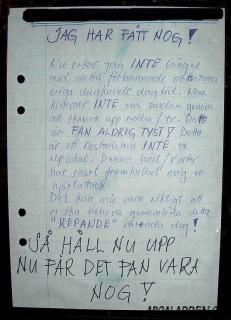 JAG HAR FÅTT NOG!
Nu orkar jag INTE längre
med detta förbannade
eviga dunkande dag/tid. Man
kommer INTE ens undan genom
att skruva upp radio/tv. Detta
är FAN ALDRIG TYST! Detta
är ett bostadshus INTE en
replokal. Denna höst/vinter
har snart framkallat mig en
hjärtattack.
Det kan inte vara riktigt att
ska behöva genomlida detta
"REPANDE" varenda dag!
SÅ HÅLL NU UPP
NU FÅR DET FAN VARA
NOG!